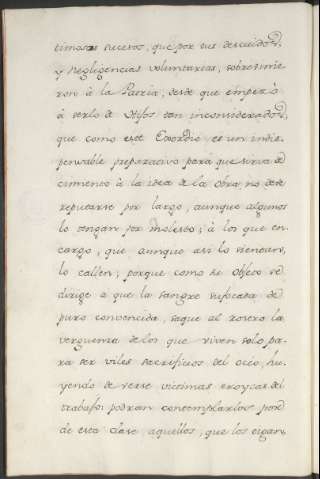 timosas sucesos, que por sus descuidos,
y negligencias voluntarias, sobrevinie
ron à la Patria, desde que empezó
à serlo de Hijos tan inconsiderados,
que como este Exordio es un indis
pensable preparativo para que sirva de
cimiento à la idea de la obra, no debe
reputarse por largo, aunque algunos
lo tengan por molesto; à los que en
cargo, que aunque asi lo sientan,
lo callen; porque como su objeto se
dirige a que la sangre sufocada de
puro convencida, saque al rostro la
verguenza de los que viven solo pa
ra ser viles sacrificios del ocio, hu
yendo de verse victimas eroycas del
trabajo: podran contemplarlos por
de esta clase aquellos, que los oigan,